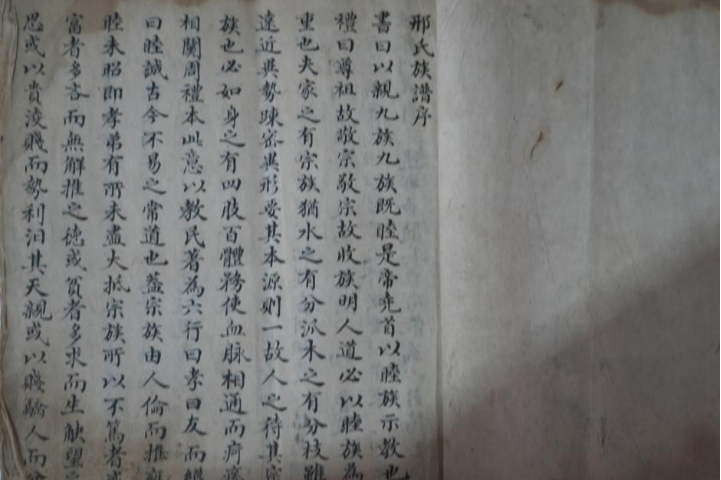 邢氏族譜序
書曰以親九族九族既睦是帝堯首以睦族示教也
禮曰尊祖故敬宗敬宗故收族明人道必以睦族為
重也夫家之有宗族猶水之有分派木之有分枝雖
遠近異勢疎密異形要其本源則一故人之待其宗
族也必如身之有四肢百體務使血脉相通而疴癢
相關周禮本此意以教民著為六行曰孝曰友而繼
曰睦誠古今不易之常道也蓋宗族由人倫而推雍
睦未昭即孝弟有所未盡大抵宗族所以不篤者或
富者多吝而無解推之德或貧者多求而生觖望之
思或以貴淩賤而勢利汨其天親或以賤驕人而